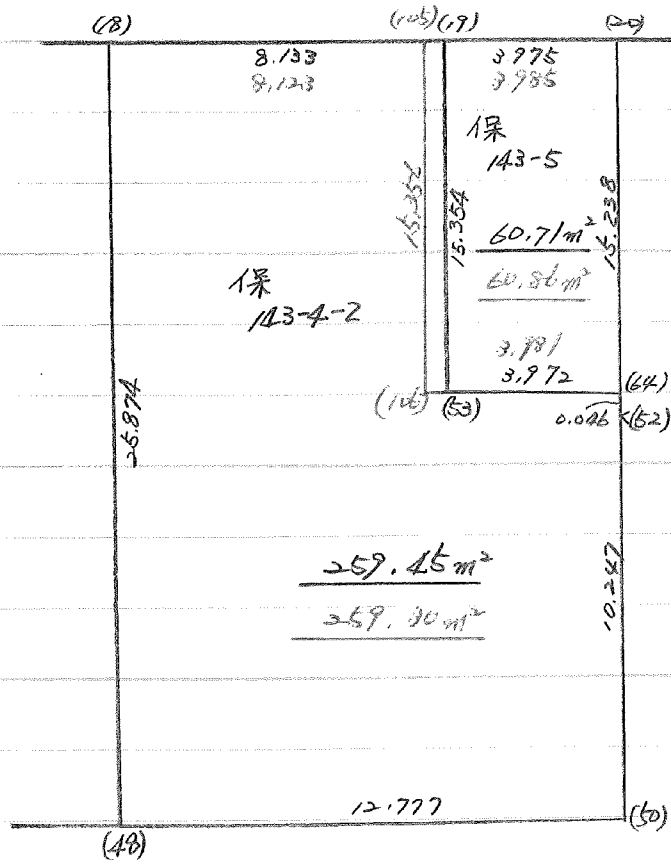 (18)
(105)
(19)
(20)
8.133
8.123
3.975
3.985
保
143-5
15.354
15.238
60.71m²
60.86m²
保
143-4-2
3.981
3.972
(64)
(106)
(53)
0.046
(52)
25.874
259.45m²
10.247
12.777
(50)
(48)